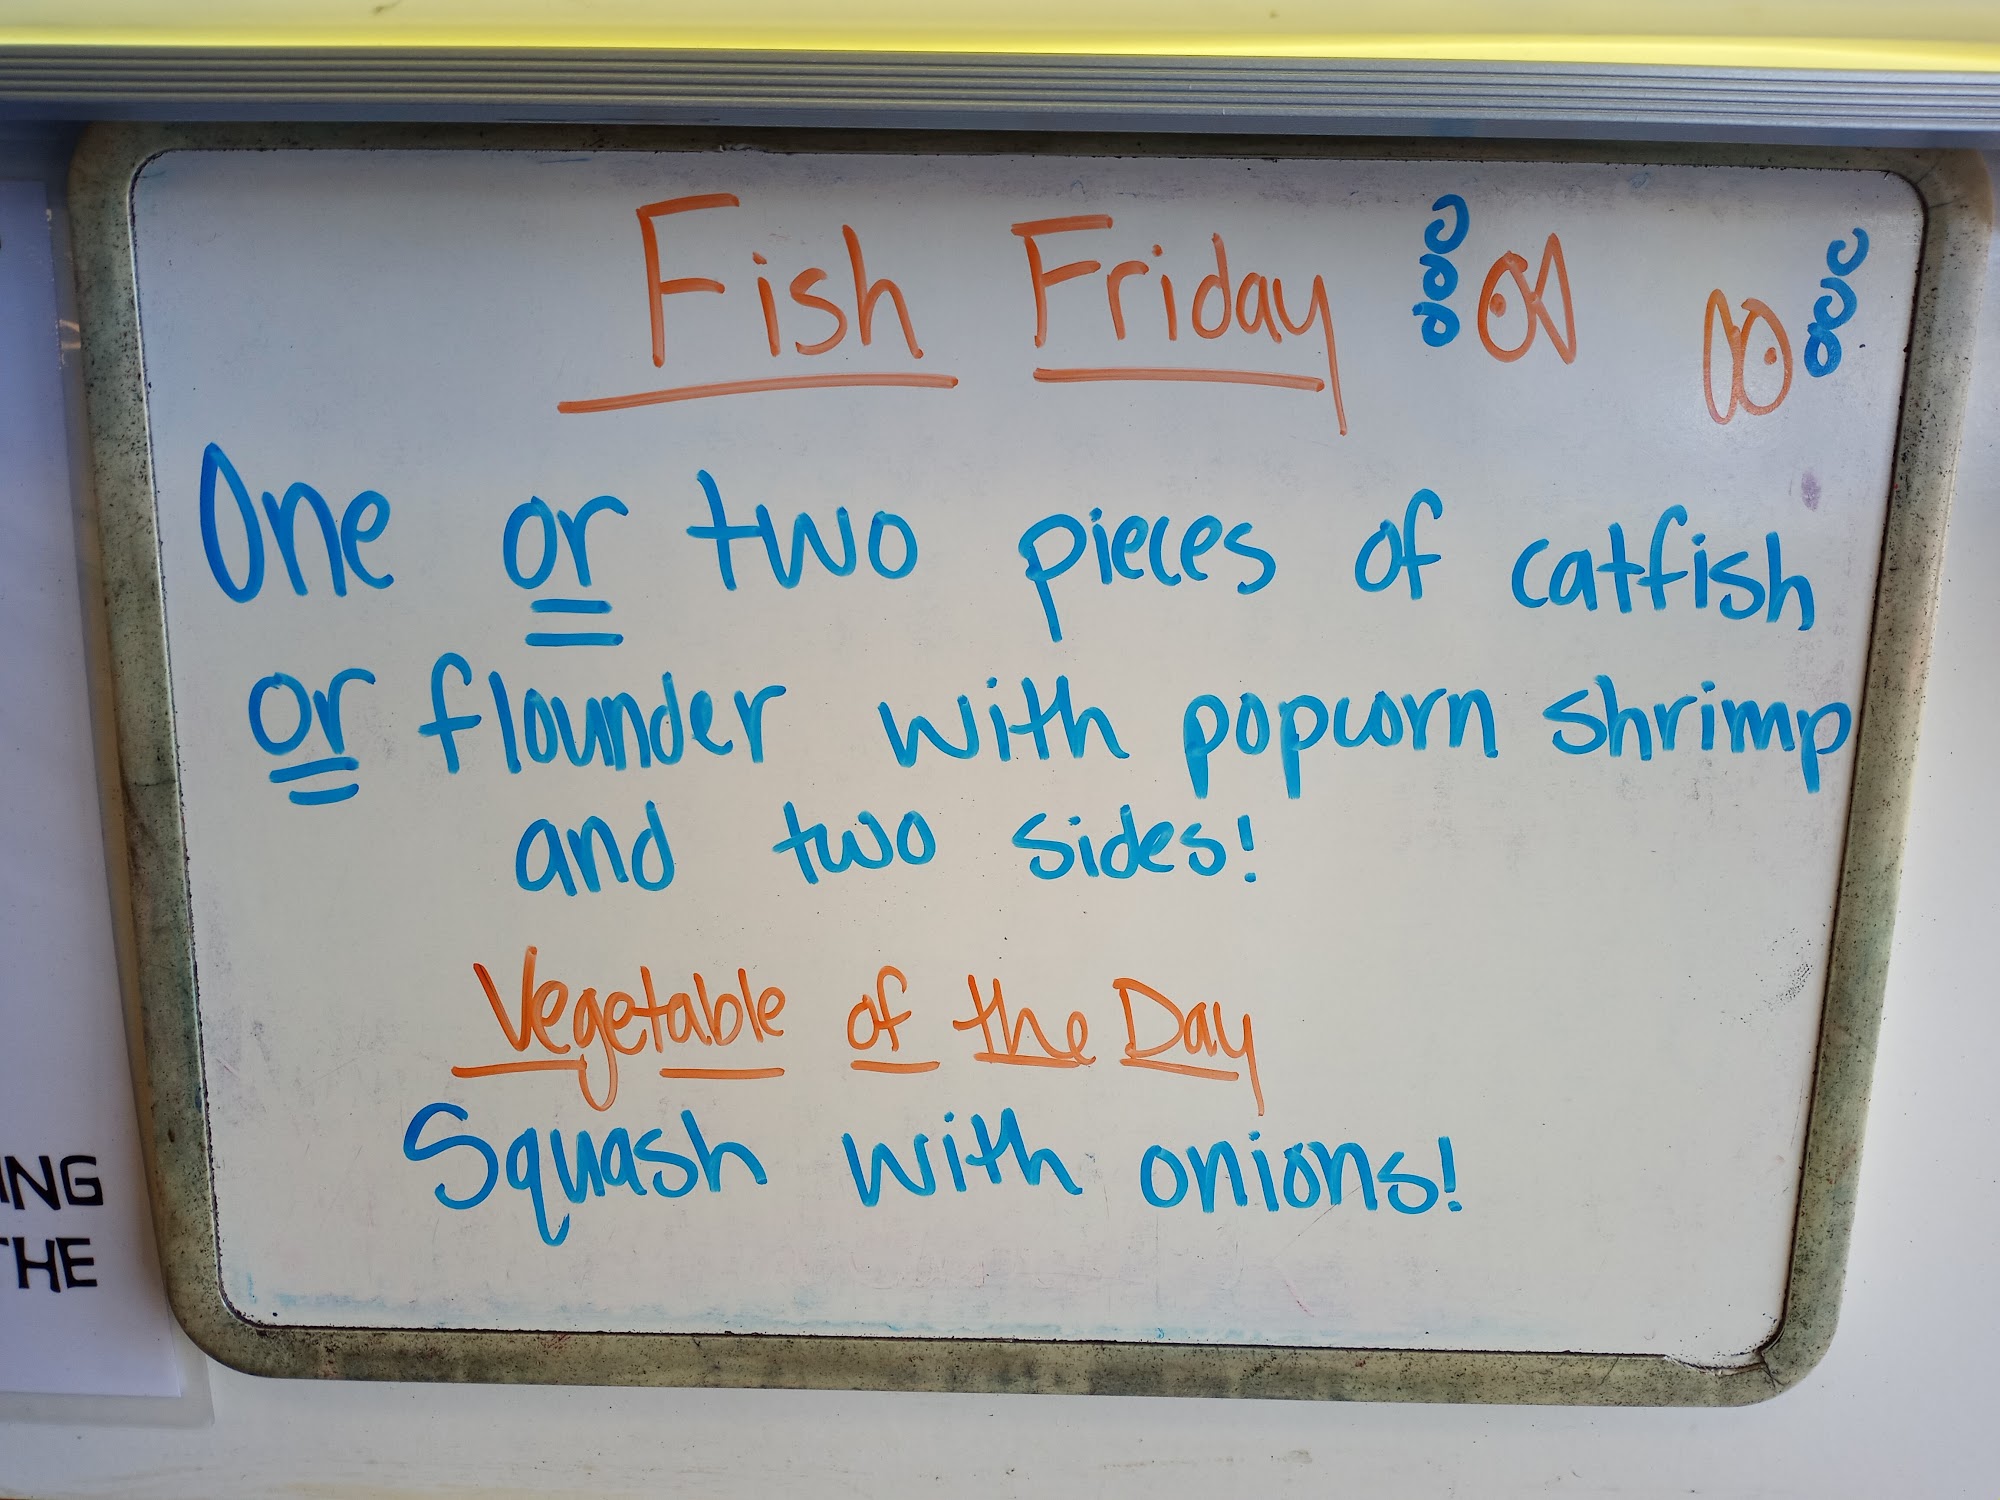 Fish Friday
One or two pieces of catfish
or flounder with popcorn shrimp
and two sides!
Vegetable of the Day
Squash with onions!
ING
THE